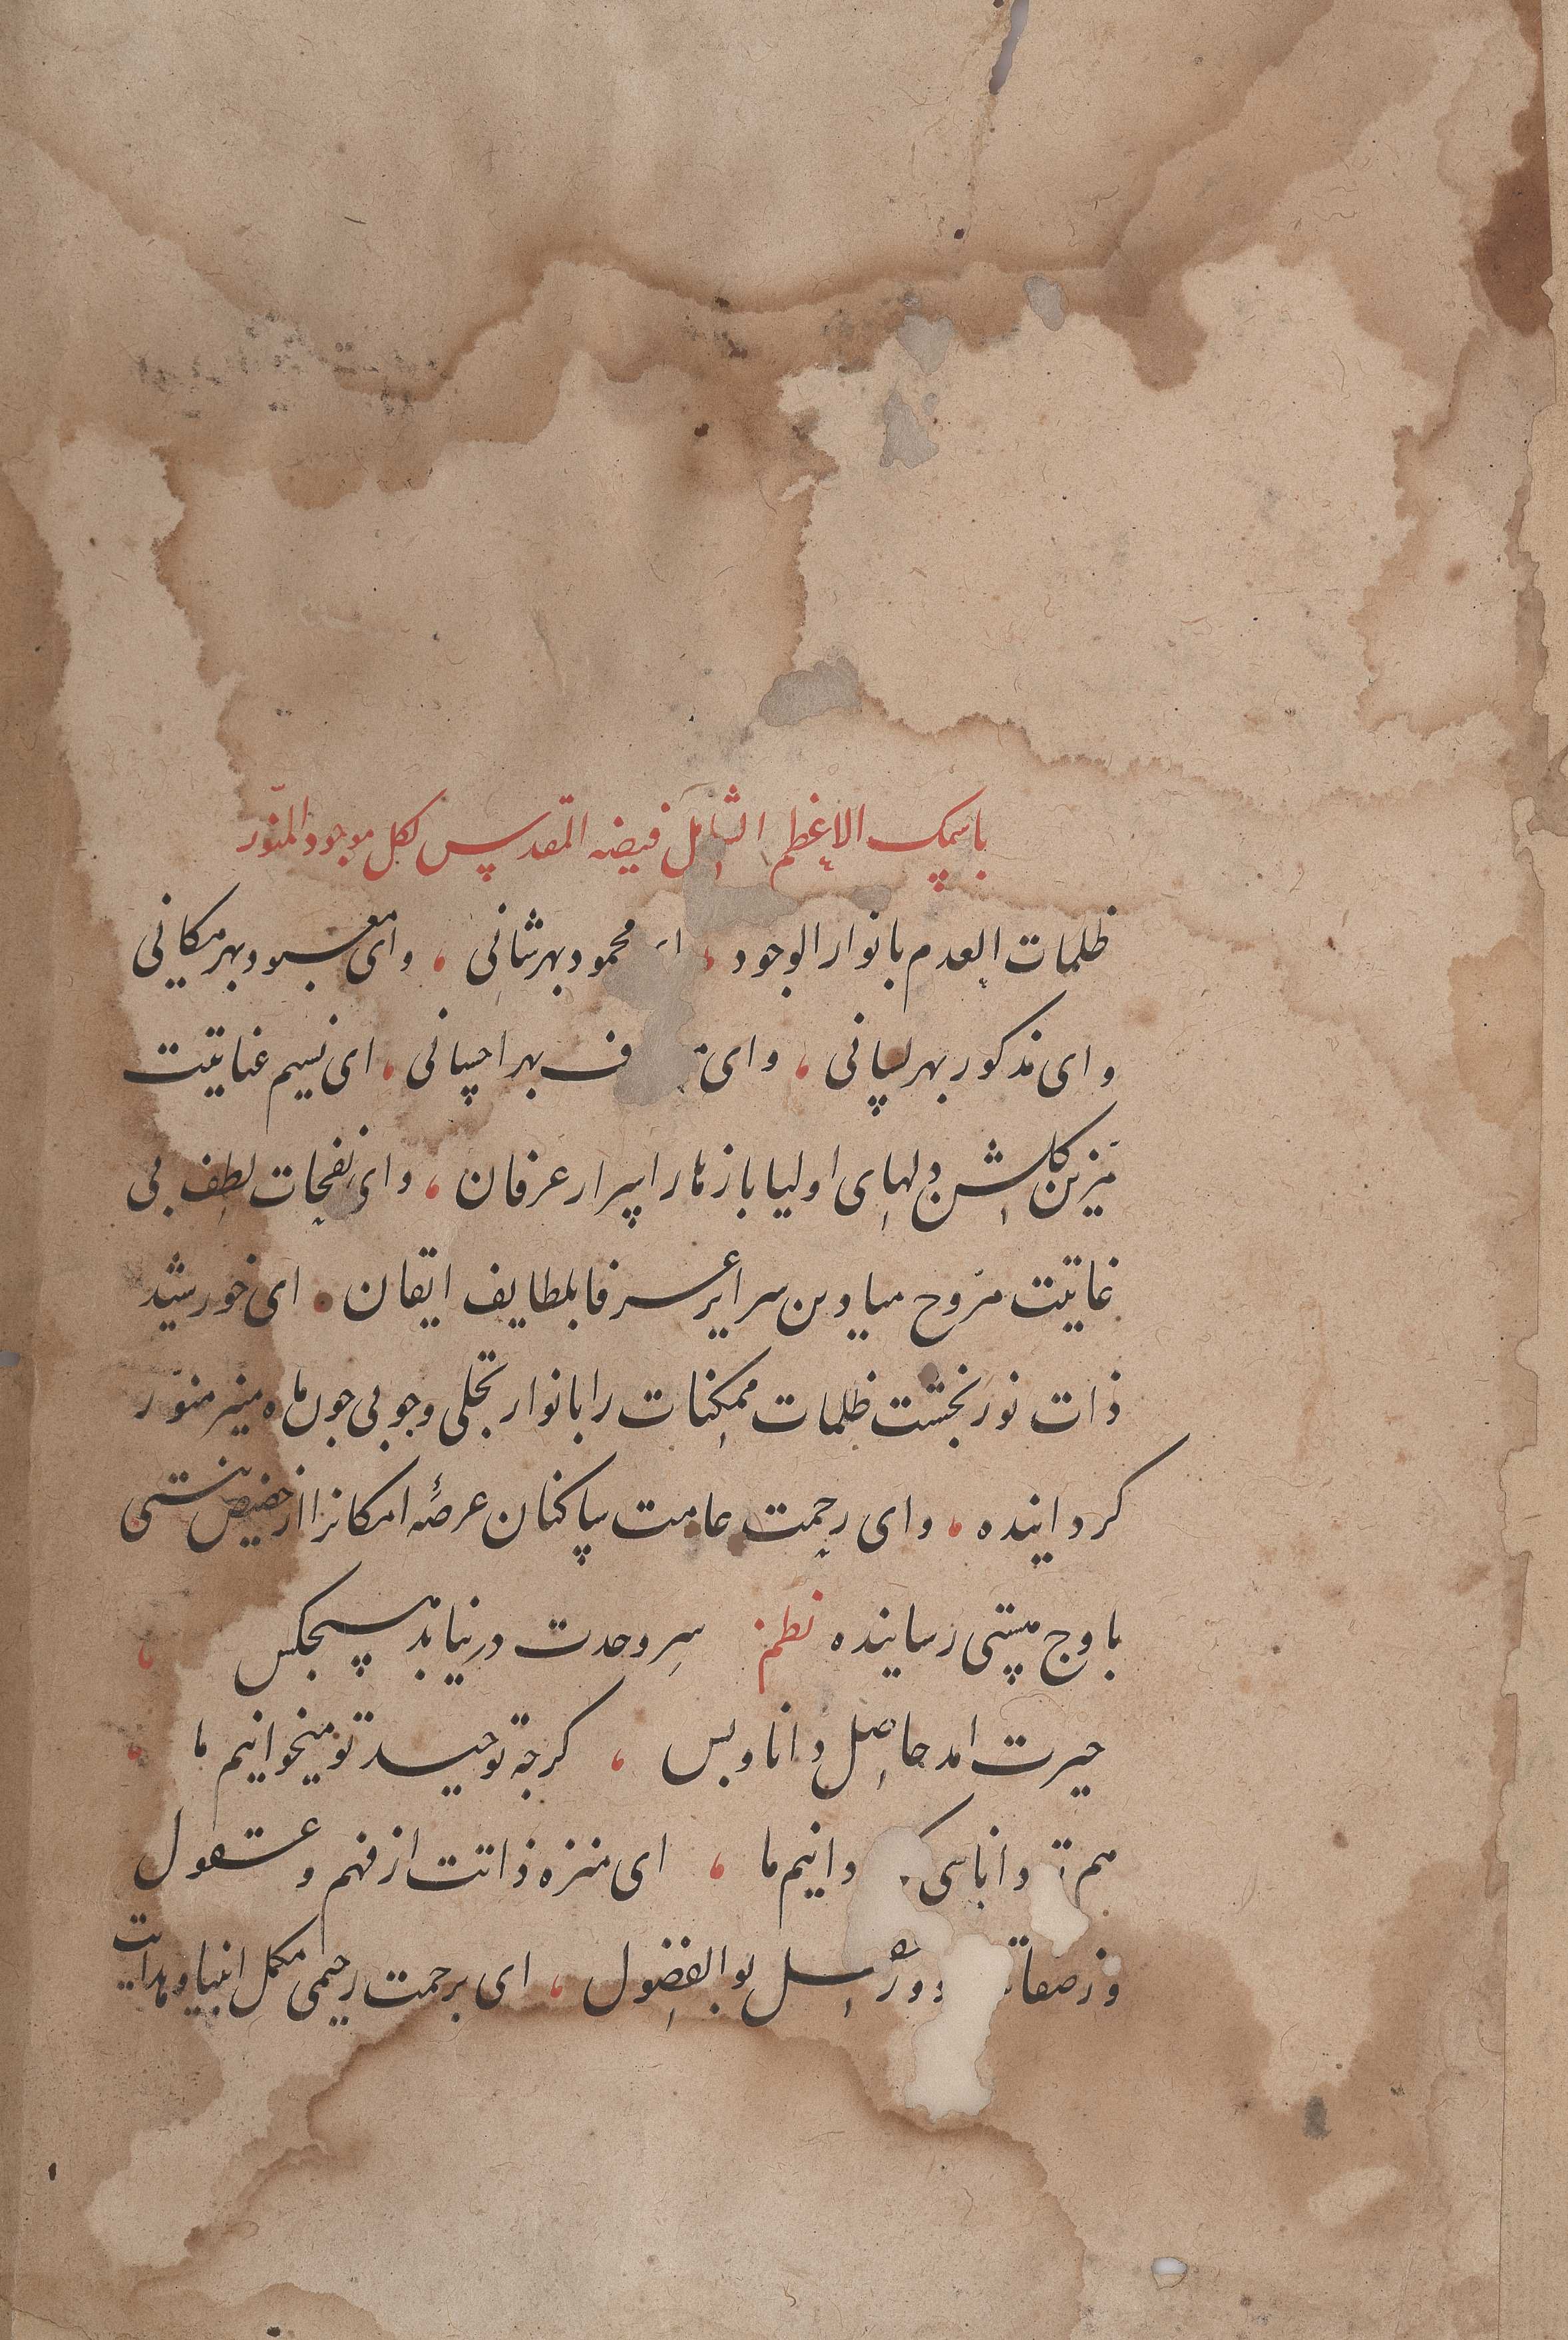 باسمك الاعظم الشامل فیضه المقدس لكل موجود المنوّر
ظلمات العدم بانوار الوجود ، محمود بهر شانی ، وای معبود بهر مکانی
وای مذکور بهر لسانی ، وای بهر احسانی ، ای نسیم عنایتت
مزّین کلشن دلهای اولیا بازهار اسرار عرفان ، وای نفحات لطف بی
غایتت مرّوح میادین سرایر عرفا بلطایف ایقان ، ای خورشید
ذات نور بخشت ظلمات ممکنات را بانوار تجلی وجوبی جون ماه منیر منوّر
کرداینده ، وای رحمت عامت ساکنان عرصهٔ امکانرا از حضیض نیستی
باوج هستی رساینده نظم سر وحدت در نیابد هیجکس ،
حیرت امد حاصل دانا و بس ، کرجه توحید تو میخوانیم ما ،
هم دانیم ما ، ای منزه ذاتت از فهم و عقول
وز بوالفضول ، ای برحمت رحیمی مکمل انبیا وهدایت